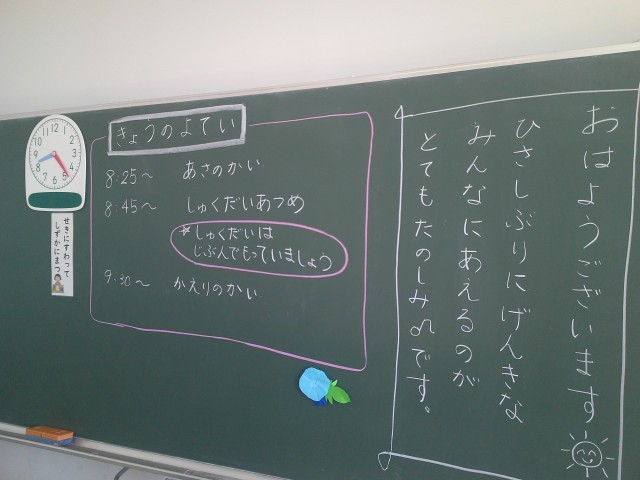 おはようございます
ひさしぶりにげんきな
みんなにあえるのが
とてもたのしみです。
きょうのよてい
8:25〜 あさのかい
8:45〜 しゅくだいあつめ
☆しゅくだいは
じぶんでもっていましょう
9:30〜 かえりのかい
12
1
2
3
4
5
6
7
8
9
10
11
せきにすわって
しずかにまつ